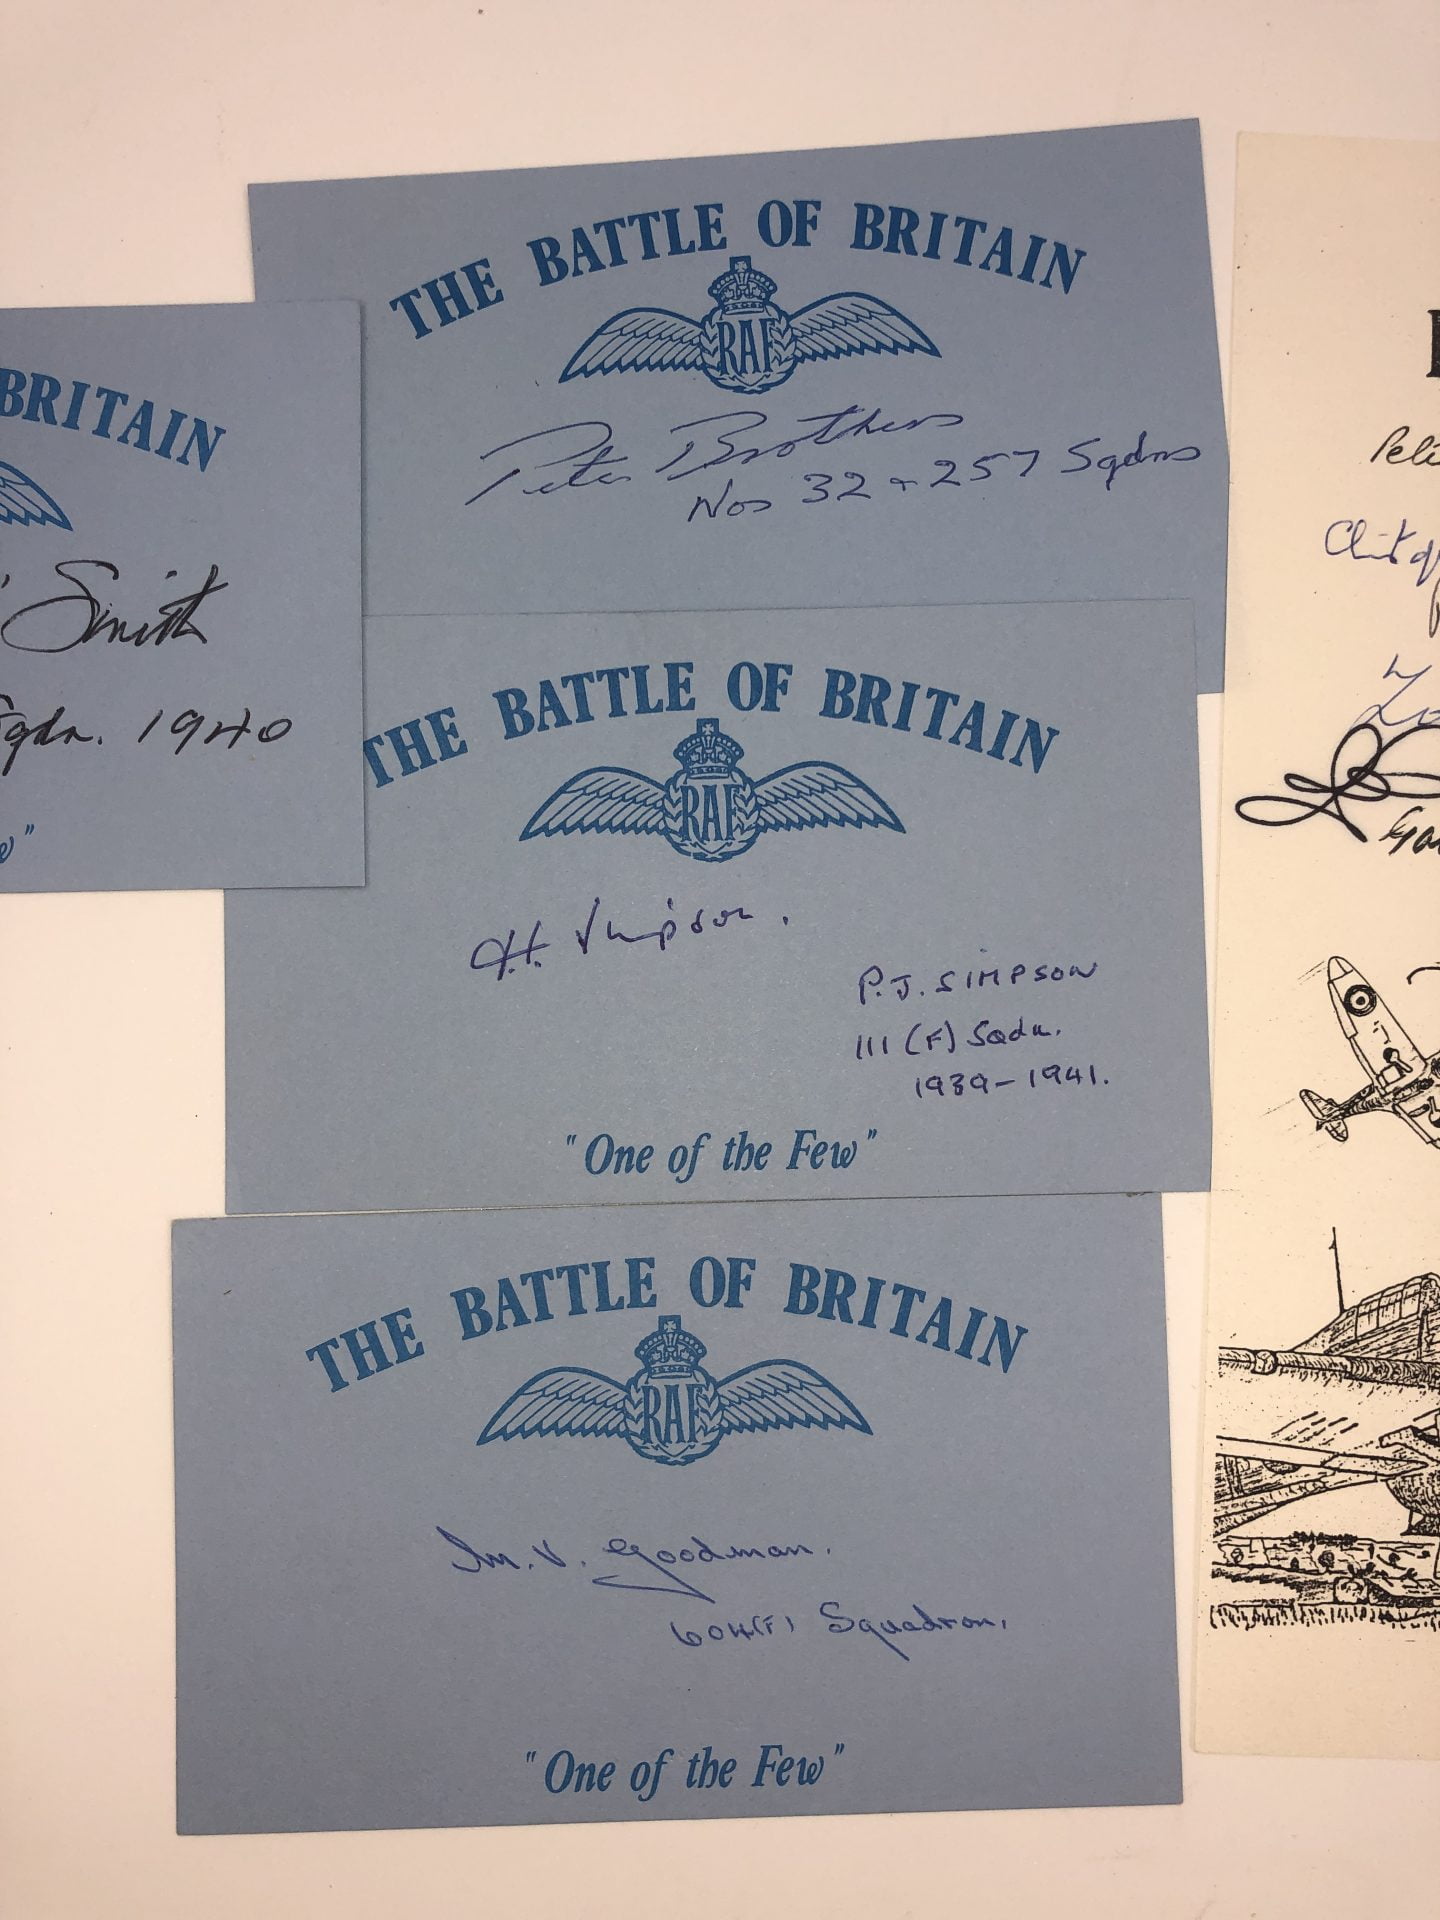 THE BATTLE OF BRITAIN
RAF
Peter Brothers
Nos 32 + 257 Sqdns
BRITAIN
Smith
Sqdn. 1940
THE BATTLE OF BRITAIN
RAF
Simpson.
P.J. SIMPSON
111 (F) Sqdn.
1939-1941.
"One of the Few"
THE BATTLE OF BRITAIN
RAF
M. V. Goodman.
604(F) Squadron.
"One of the Few"